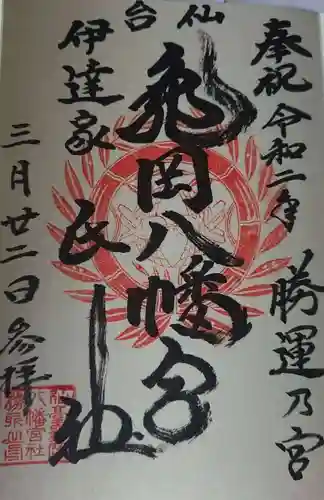 奉祝 令和二年
勝運乃宮
仙台
亀岡八幡宮
伊達家
氏社
三月廿二日参拝